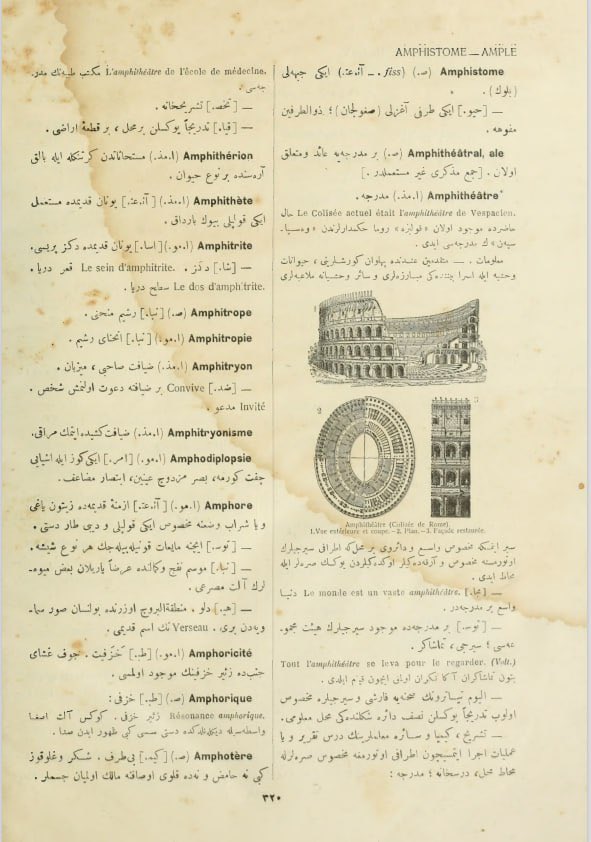 AMPHISTOME — AMPLE
Amphistome (ص.) (fiss. ـ آ.ع.) ایکی جبهه‌لی
(بلوك) .
— [حیو.] ایکی طرفی آغزلی (صغولجان) ؛ ذوالطرفین
مفوهه .
Amphithéâtral, ale (ص) بر مدرجه‌یه عائد ومتعلق
اولان . [جمع مذکری غیر مستعملدر.]
Amphithéâtre* (ا.مذ.) مدرجه .
Le Colisée actuel était l'amphithéâtre de Vespacien. حال
حاضرده موجود اولان «قولیزه» روما حکمدارلرندن «وه‌سپا-
سیه‌ن» ك مدرجه‌سی ایدی .
معلومات . — متقدمین عندنده پهلوان کورشلرینی ، حیوانات
وحشیه ایله اسرا بیننده‌کی مبارزه‌لری و سائر وحشیانه ملاعبه‌لری
1
2
3
Amphithéâtre (Colisée de Rome).
1. Vue extérieure et coupe. — 2. Plan. — 3. Façade restaurée.
سیر ایتمکه مخصوص واسع و دائروی بر محل‌که اطرافی سیرجیلرك
اوتورمسنه مخصوص و آرقه‌ده‌کیلر اوکده‌کیلردن یوکسك صره‌لر ایله
محاط ایدی .
— [مجا.] Le monde est un vaste amphithéâtre. دنیا
واسع بر مدرجه‌در .
— [توس.] بر مدرجه‌ده موجود سیرجیلرك هیئت مجمو-
عه‌سی ؛ سیرجی ، تماشاکر .
Tout l'amphithéâtre se leva pour le regarder. (Volt.)
بتون تماشاکران آکا نکران اولمق ایچون قیام ایلدی .
— الیوم تیاترونك صحنه‌یه قارشی و سیرجیلره مخصوص
اولوب تدریجاً یوکسلن نصف دائره شکلنده‌کی محل معلومی .
— تشریح ، کیمیا و سائره معلملرینك درس تقریر و یا
عملیات اجرا ایتمسیچون اطرافی اوتورمغه مخصوص صره‌لرله
محاط محل ، درسخانه ؛ مدرجه :
L'amphithéâtre de l'école de médecine. مکتب طبیه‌نك مدر-
جه‌سی .
— [تخصـ.] تشریحخانه .
— [قبا.] تدریجاً یوکسلن بر محل ، بر قطعهٔ اراضی .
Amphithérion (ا.مذ.) مستحاثاتدن کرتنکله ایله بالق
آره‌سنده بر نوع حیوان .
Amphithète (ا.مذ.) [آ.ع.] یونان قدیمده مستعمل
ایکی قولپلی بیوك بارداق .
Amphitrite (ا.مو.) [اسا.] یونان قدیمده دکز پریسی .
— [شا.] دکز . Le sein d'amphitrite. قعر دریا .
Le dos d'amphitrite. سطح دریا .
Amphitrope (ص) [نبا.] رشیم منحنی .
Amphitropie (ا.مو.) [نبا.] انحنای رشیم .
Amphitryon (ا.مذ.) ضیافت صاحبی ، میزبان .
— [ضد.] Convive بر ضیافته دعوت اولنمش شخص .
Invité مدعو .
Amphitryonisme (ا.مذ.) ضیافت کشیده ایتمك مراقی.
Amphodiplopsie (ا.مو.) [امر.] ایکی کوز ایله اشیایی
چفت کورمه، بصر مزدوج عینین، ابتصار مضاعف.
Amphore (ا.مو.) [آ.ع.] ازمنهٔ قدیمه‌ده زیتون یاغی
و یا شراب وضعنه مخصوص ایکی قولپلی و دیبی طار دستی .
— [توس.] ایچنه مایعات قونیله‌بیله‌جك هر نوع شیشه .
— [نبا.] موسم نضج وکمالنده عرضاً یاریلان بعض میوه-
لرك آلت مصرعی .
— [هیـ.] دلو . منطقةالبروج اوزرنده بولنان صور سما-
ویه‌دن بری . Verseau نك اسم قدیمی .
Amphoricité (ا.مو.) [طب.] خزفیت . جوف غشای
جنبده زئیر خزفینك موجود اولمسی .
Amphorique (ص) [طب.] خزفی :
Résonance amphorique. زئیر خزفی . کوکس آلت اصغا
واسطه‌سیله دیکلنلدکده دستی سسی کبی ظهور ایدن صدا .
Amphotère (ص) [کیـ.] بی‌طرف . شکر وغلوقوز
کبی نه حامض و نه‌ده قلوی اوصافنه مالك اولمیان جسملر .
٣٢٠